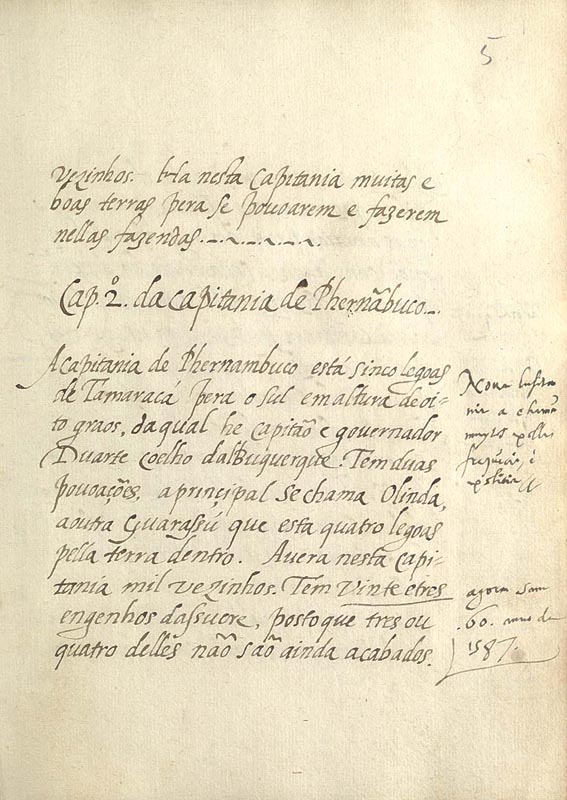 5
vezinhos. Ha nesta Capitania muitas e
bõas terras pera se povoarem e fazerem
nellas fazendas.
Cap.º 2. da capitania de Phernãbuco.
A capitania de Phernambuco está sinco legoas
de Tamaracá pera o sul em altura de oi-
to graos, da qual he capitaõ e governador
Duarte Coelho dalBuquerque. Tem duas
povoações, a principal se chama Olinda,
a outra Guarassú que esta quatro legoas
pella terra dentro. Avera nesta Capi-
tania mil vezinhos. Tem vinte e tres
engenhos dassucre, posto que tres ou
quatro delles naõ saõ ainda acabados.
Nova lusita
nia a chamã
muytos
agora sam
.60. anno de
1587.